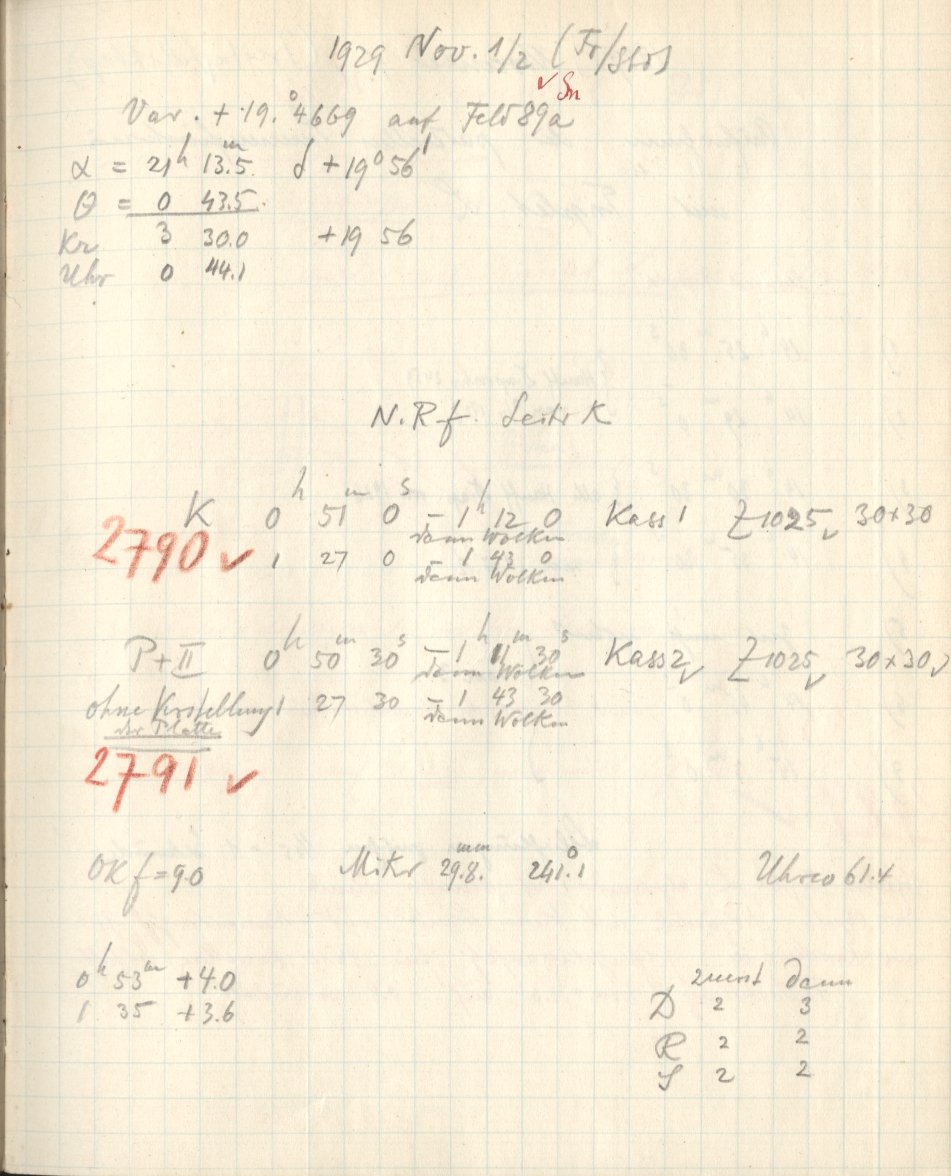 1929 Nov. 1/2 (Fr/Sbd)
✓ Sn
Var. + 19.°4669 auf Feld 89a
α = 21h 13.m5 δ + 19° 56'
θ = 0 43.5
Kr 3 30.0 +19 56
Uhr 0 44.1
N. Rf. Seite K
K 0h 51m 0s – 1h 12 0 Kass 1 Z 1025 ✓ 30×30
dann Wolken
2790 ✓ 1 27 0 – 1 43 0
dann Wolken
P+II 0h 50m 30s – 1h 11m 30s Kass 2 ✓ Z 1025 ✓ 30×30 ✓
dann Wolken
ohne Verstellung 1 27 30 – 1 43 30
der Platte dann Wolken
2791 ✓
OKf = 9.0 Mikr 29.mm8. 241.°1 61.4
0h 53m +4.0
1 35 +3.6
zuerst dann
D 2 3
R 2 2
S 2 2